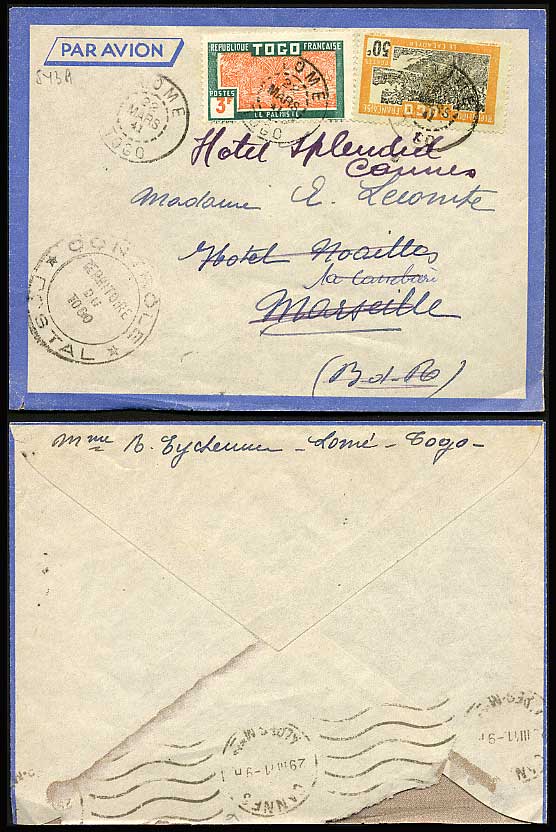 PAR AVION
543A
REPUBLIQUE TOGO FRANÇAISE
POSTES 3F
LE PALMISTE
50c
LE CACAOYER
POSTES
TOGO
LOME
22
MARS
41
TOGO
Hotel Splendid
Cannes
Madame E. Lecomte
Hotel Noailles
Marseille
(B-d-R)
★ CONTROLE ★ POSTAL
TERRITOIRE
DU
TOGO
Mme R. Eychenne - Lomé - Togo -
CANNES
ALPES-M